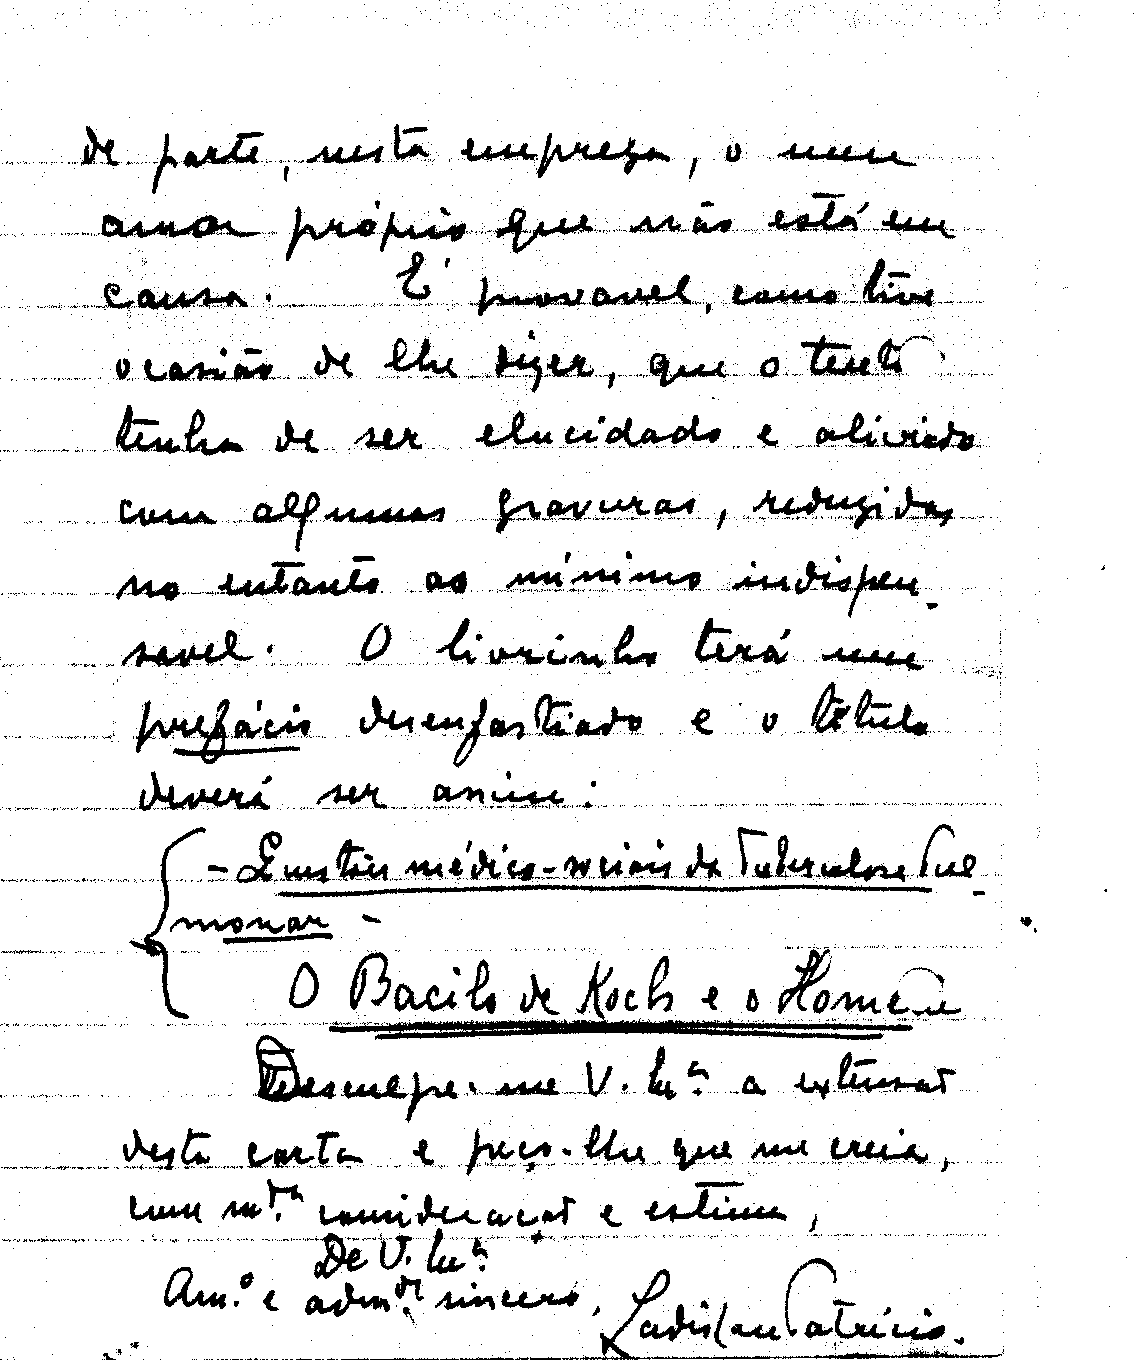 de parte, nesta empreza, o meu
amor próprio que não está em
causa. É provavel, como tive
ocasião de lhe dizer, que o texto
tenha de ser elucidado e aliviado
com algumas gravuras, reduzidas
no entanto ao mínimo indispen-
savel. O livrinho terá um
prefácio desenfastiado e o título
deverá ser assim:
- Questões médico-sociais da Tuberculose Pul-
monar -
O Bacilo de Koch e o Homem
Desculpe-me V. Ex.ª a extensão
desta carta e peço-lhe que me creia,
com m.ta consideração e estima,
De V. Ex.ª
Am.º e adm.dor sincero,
Ladislau Patrício.